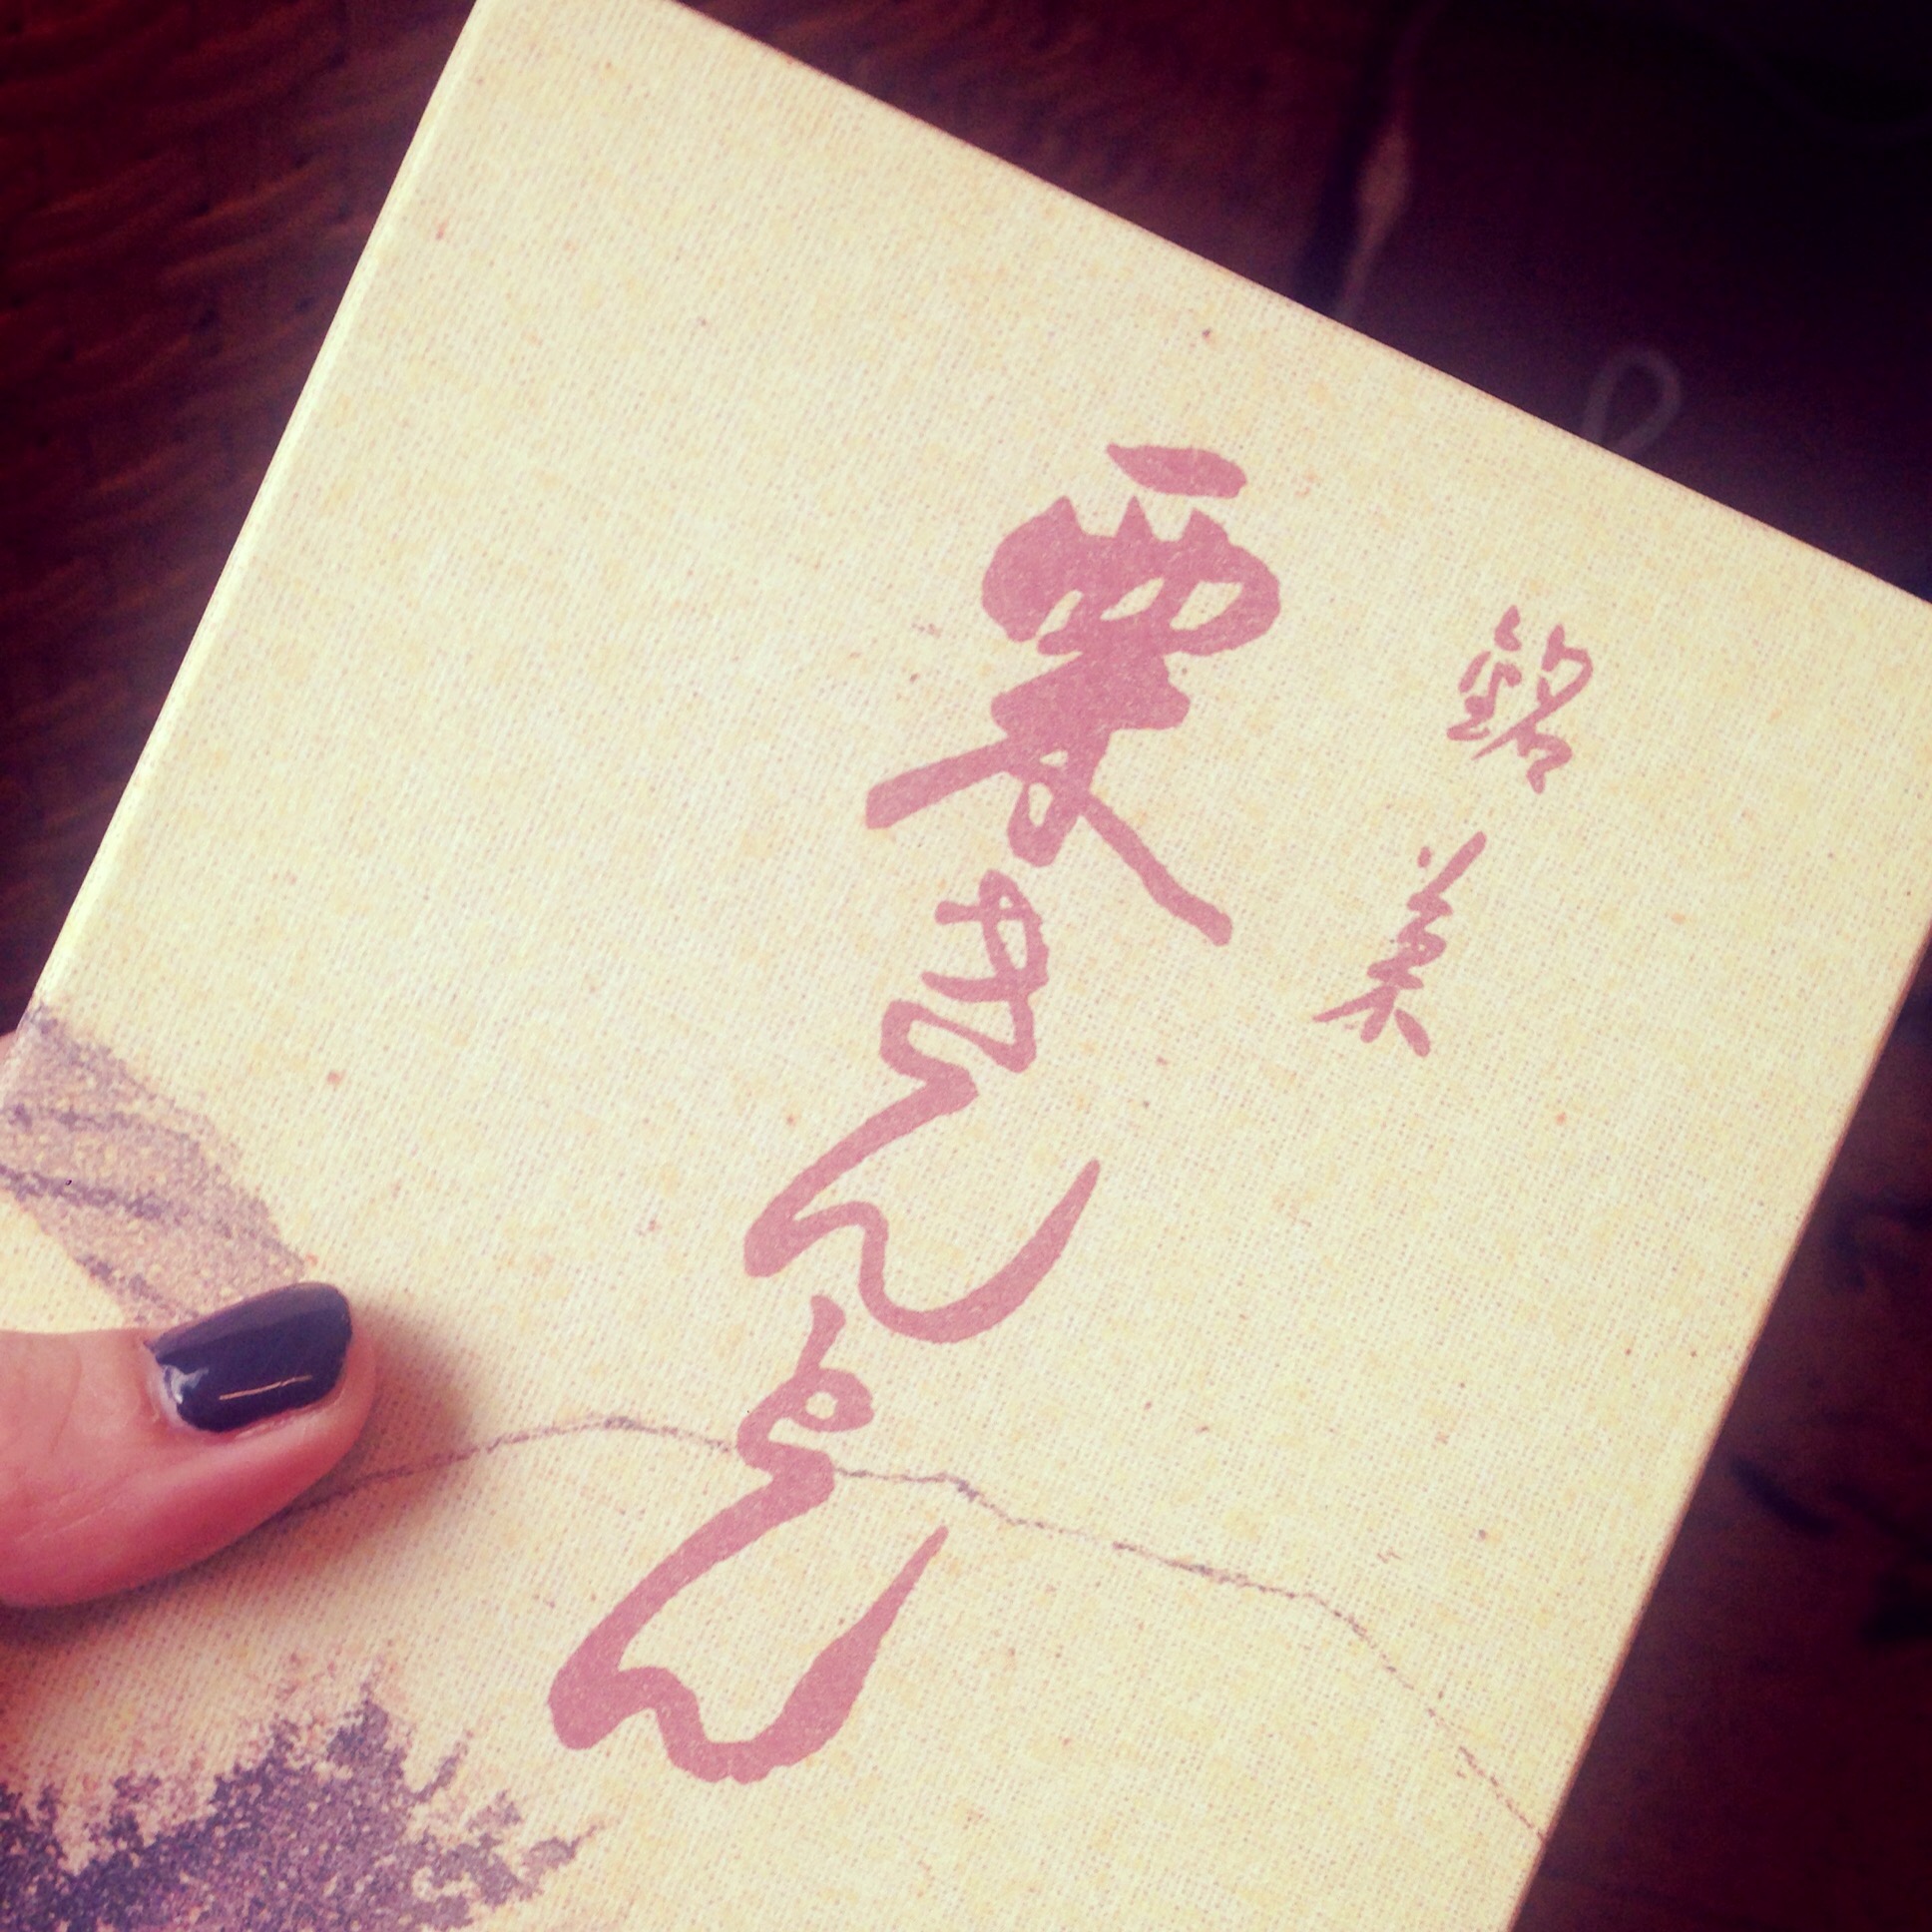 銘菓
栗きんとん